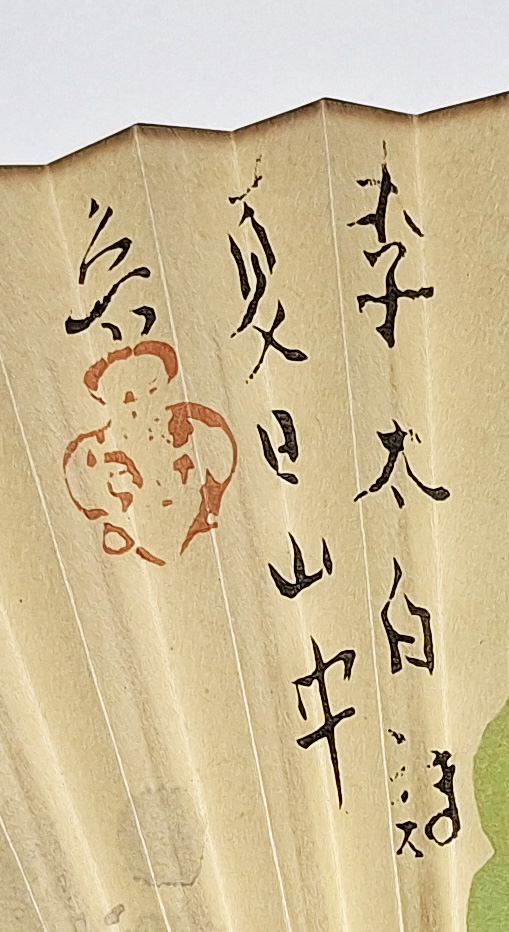 李太白詩
夏日山中